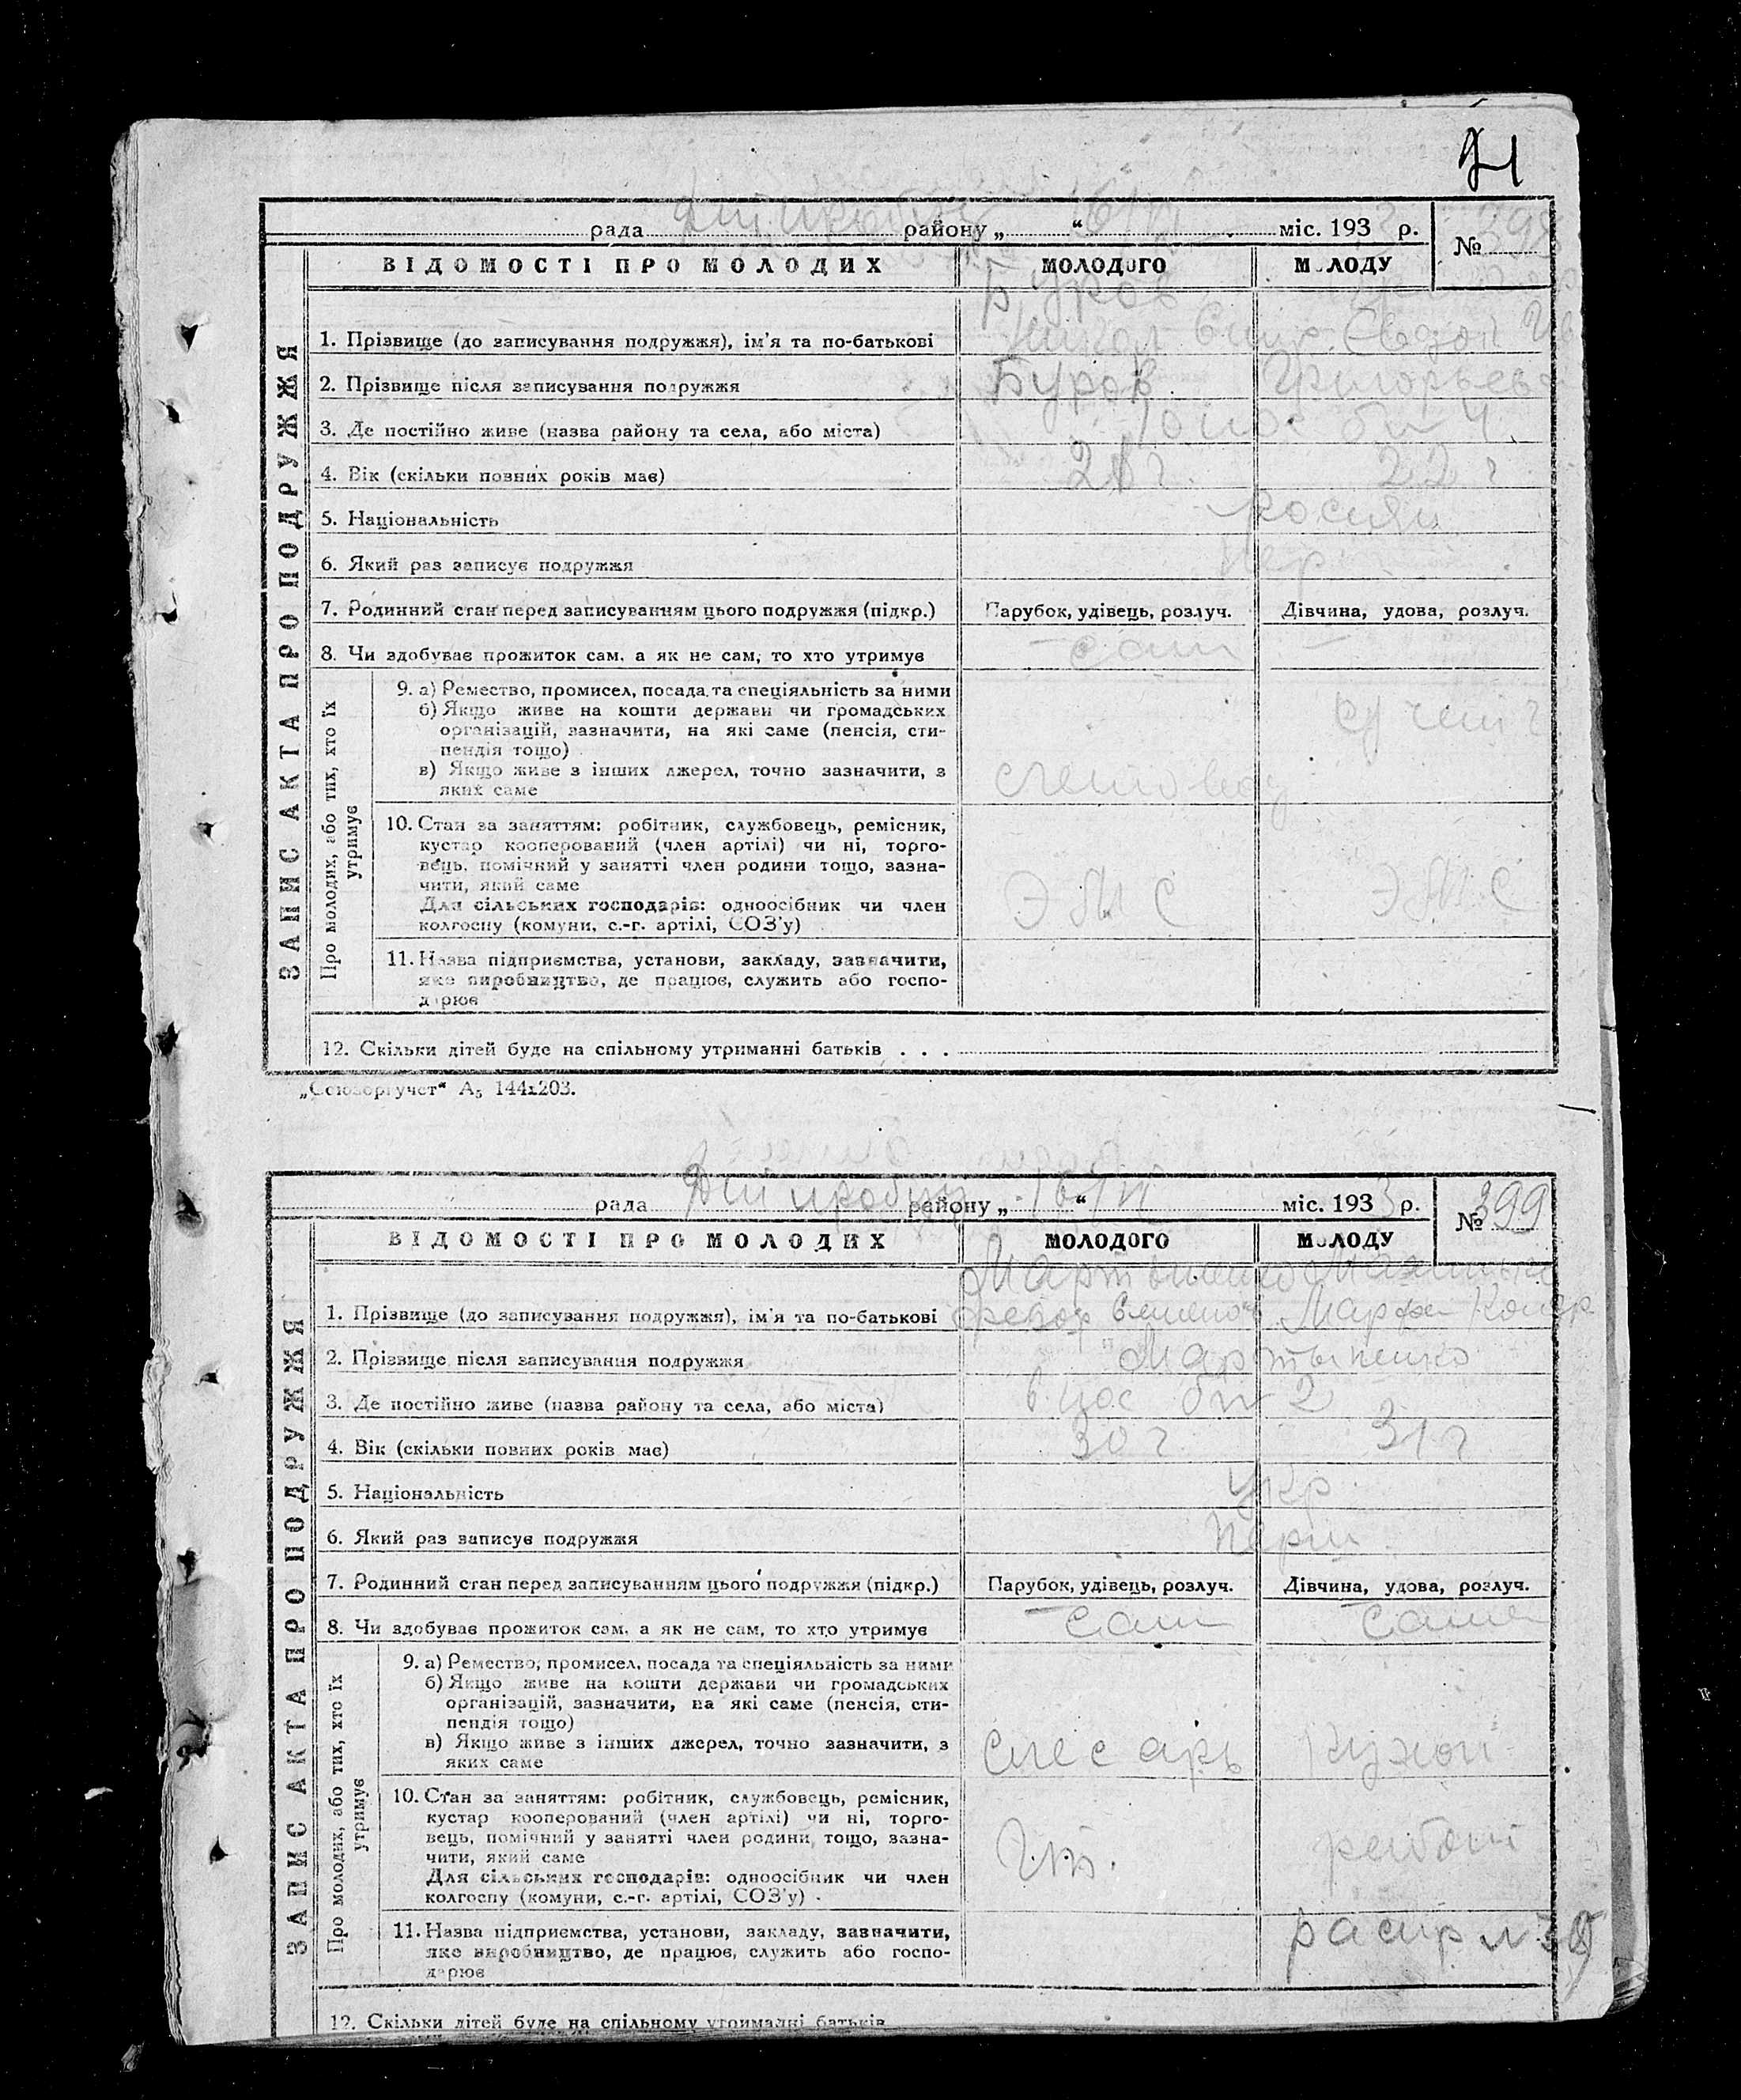 рада району „ “ міс. 193 р.
№ 398
ВІДОМОСТІ ПРО МОЛОДИХ МОЛОДОГО МОЛОДУ
ЗАПИС АКТА ПРО ПОДРУЖЖЯ
Буров
1. Прізвище (до записування подружжя), ім'я та по-батькові
2. Прізвище після записування подружжя Буров Григорьева
3. Де постійно живе (назва району та села, або міста)
4. Вік (скільки повних років має) 22 г
5. Національність росиян
6. Який раз записує подружжя пер
7. Родинний стан перед записуванням цього подружжя (підкр.) Парубок, удівець, розлуч. Дівчина, удова, розлуч.
8. Чи здобуває прожиток сам, а як не сам, то хто утримує сам
Про молодих, або тих, хто їх утримує
9. а) Ремество, промисел, посада та спеціяльність за ними
б) Якщо живе на кошти держави чи громадських
організацій, зазначити, на які саме (пенсія, сти-
пендія тощо)
в) Якщо живе з інших джерел, точно зазначити, з
яких саме счетовод
10. Стан за заняттям: робітник, службовець, ремісник,
кустар кооперований (член артілі) чи ні, торго-
вець, помічний у занятті член родини тощо, зазна-
чити, який саме
Для сільських господарів: одноосібник чи член
колгоспу (комуни, с.-г. артілі, СОЗ'у)
11. Назва підприємства, установи, закладу, зазначити,
яке виробництво, де працює, служить або госпо-
дарює
12. Скільки дітей буде на спільному утриманні батьків . . .
„Союзоргучет“ А5 144х203.
рада району „ “ міс. 1933 р.
№ 399
ВІДОМОСТІ ПРО МОЛОДИХ МОЛОДОГО МОЛОДУ
ЗАПИС АКТА ПРО ПОДРУЖЖЯ
Мартыненко
1. Прізвище (до записування подружжя), ім'я та по-батькові Федор Марфа
2. Прізвище після записування подружжя Мартыненко
3. Де постійно живе (назва району та села, або міста)
4. Вік (скільки повних років має) 30 г 31 г
5. Національність укр
6. Який раз записує подружжя перш
7. Родинний стан перед записуванням цього подружжя (підкр.) Парубок, удівець, розлуч. Дівчина, удова, розлуч.
8. Чи здобуває прожиток сам, а як не сам, то хто утримує сам сама
Про молодих, або тих, хто їх утримує
9. а) Ремество, промисел, посада та спеціяльність за ними
б) Якщо живе на кошти держави чи громадських
організацій, зазначити, на які саме (пенсія, сти-
пендія тощо)
в) Якщо живе з інших джерел, точно зазначити, з
яких саме слесарь кухон
10. Стан за заняттям: робітник, службовець, ремісник,
кустар кооперований (член артілі) чи ні, торго-
вець, помічний у занятті член родини тощо, зазна-
чити, який саме
Для сільських господарів: одноосібник чи член
колгоспу (комуни, с.-г. артілі, СОЗ'у)
11. Назва підприємства, установи, закладу, зазначити,
яке виробництво, де працює, служить або госпо-
дарює
12. Скільки дітей буде на спільному утриманні батьків